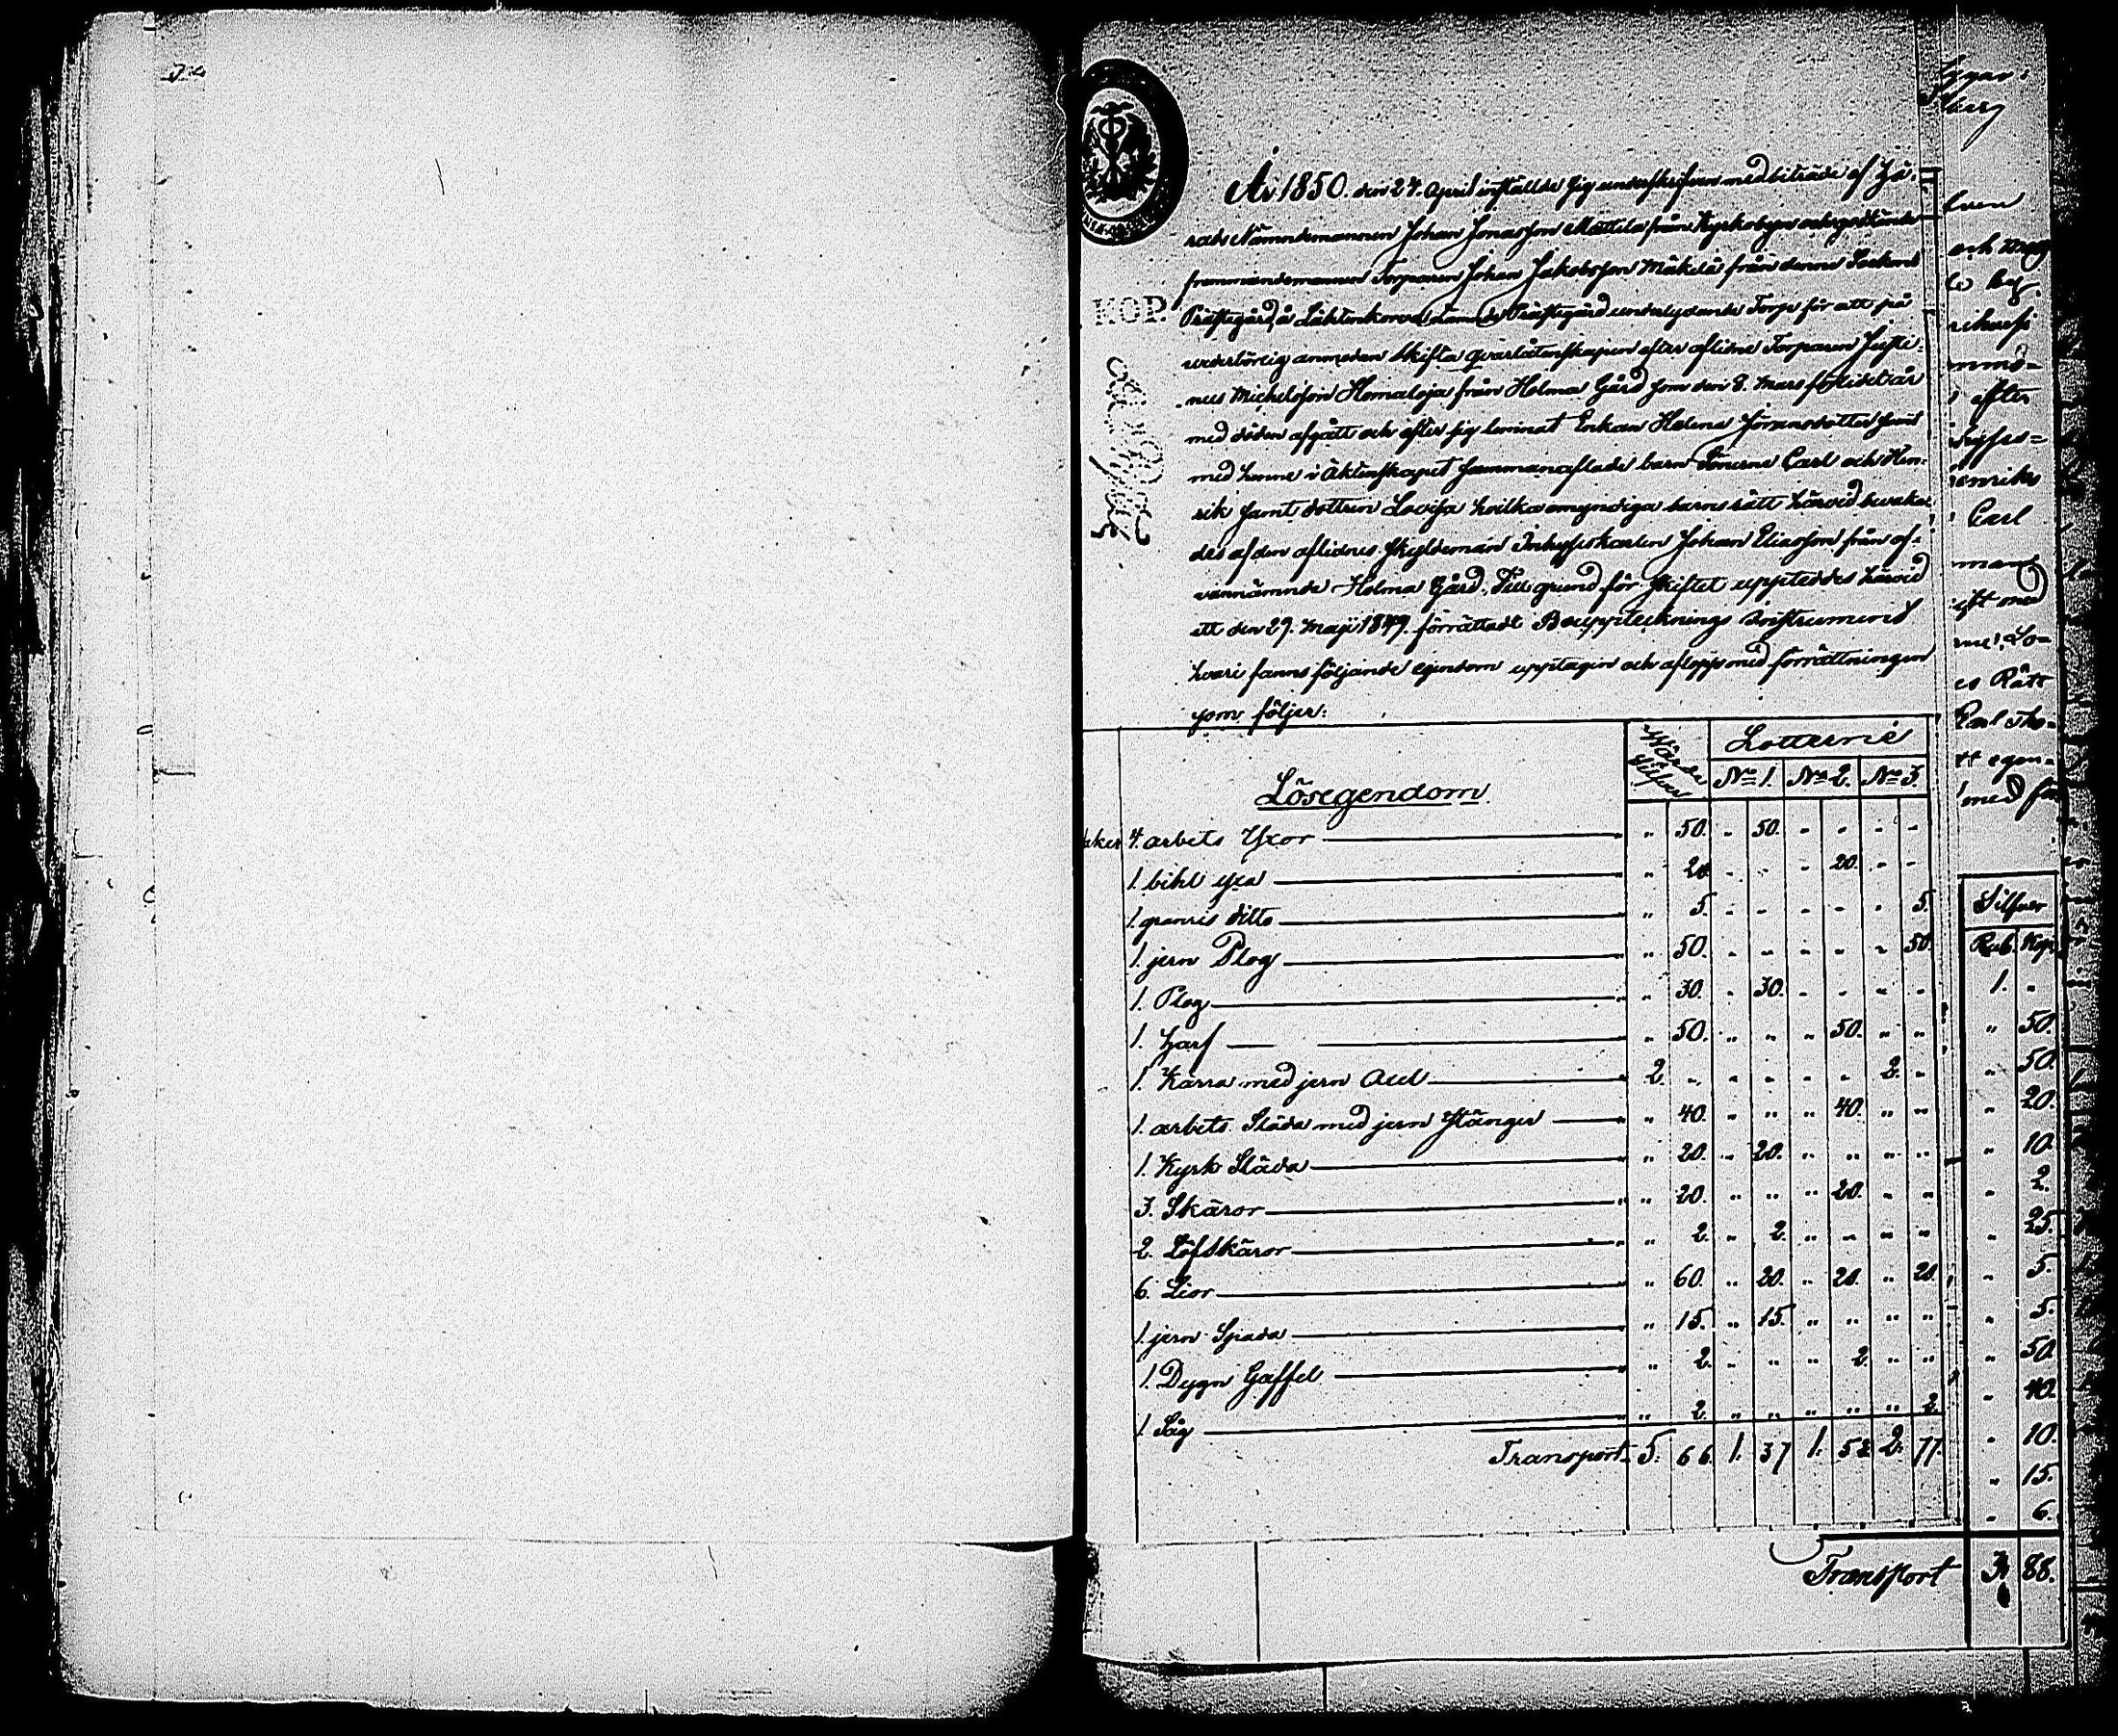 År 1850. den 24. April inställde sig undertecknad med biträde af Hä-
rads Nämndemannen Johan Jonasson Mattila från Kyrkobyn och godkände
fremmandemannen Torparen Johan Jakobsson Mäkelä från denne Sockens
Prästegård, å Lähteenkorva samma Prästegård underlydande Torp för att på
vederbörlig anmodan skifta qvarlåtenskapen efter aflidne Torparen Justi-
nus Michelsson Homaloja från Holma Gård som den 8. Mars förledet år
med döden afgått och efter sig lemnat Enkan Helena Jöransdotter samt
med henne i äktenskapet sammanaflade barn Sönerne Carl och Hen-
rik samt dottren Lovisa hvilka omyndiga barns rätt härvid bevaka-
des af den aflidnes skyldeman Inhyseskarlen Johan Eliasson från of-
vannämnde Holma Gård. Till grund för skiftet uppteddes härvid
ett den 29. Maji 1849. förrättadt Bouppteknings Instrument
hvari fanns följande egendom upptagen och aflopp med förrättningen
som följer:
KOP.
Wärde Silfver
Lotterne
Lösegendom
No 1. No 2. No 3.
4. arbets Yxor " 50. - 50. - - - -
1. bihl yxa " 20 - - - 20. - -
1. granris ditto " 5. - - - - - 5.
1. jern Plog " 50. - - - - - 50
1. Plog " 30. - 30. - - - -
1. Harf " 50. " " " 50. " "
1. Kärra med jern Axel 2. - - - - - 2. -
1. arbets Släda med jern Stänger " 40. " " " 40. " "
1. Kyrk Släda " 20. " 20. " " " "
3. Skäror " 20. " " " 20. " "
2. Löfskäror " 2. " 2. " " " "
6. Lior " 60. " 20. " 20. " 20.
1. jern Spada " 15. " 15. " " " "
1. Dygn Gaffel " 2. " " " 2. " "
1. Såg " 2. " " " " " 2.
Transport 5. 66. 1. 37 1. 52 2. 77.
och
efter
Carl
med
es Rätt
tt egen-
med
Silfver
Rub. Kop.
1. "
" 50.
" 50.
" 20.
" 10.
" 2.
" 25.
" 5.
" 5.
" 50.
" 40.
" 10.
" 15.
" 6.
Transport 88.